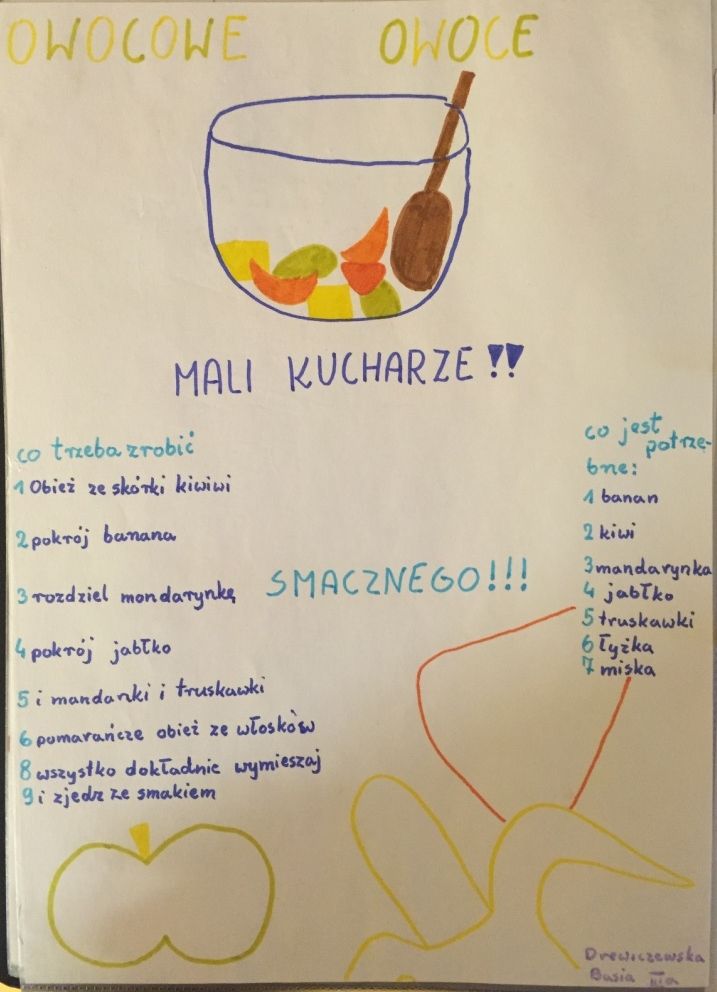 OWOCOWE OWOCE
MALI KUCHARZE!!
co trzeba zrobić
1 Obież ze skórki kiwiwi
2 pokrój banana
3 rozdziel mondarynkę
4 pokrój jabłko
5 i mandarki i truskawki
6 pomarańcze obież ze włosków
8 wszystko dokładnie wymieszaj
9 i zjedz ze smakiem
SMACZNEGO!!!
co jest
potrze-
bne:
1 banan
2 kiwi
3 mandarynka
4 jabłko
5 truskawki
6 łyżka
7 miska
Drewiczewska
Basia IIIa